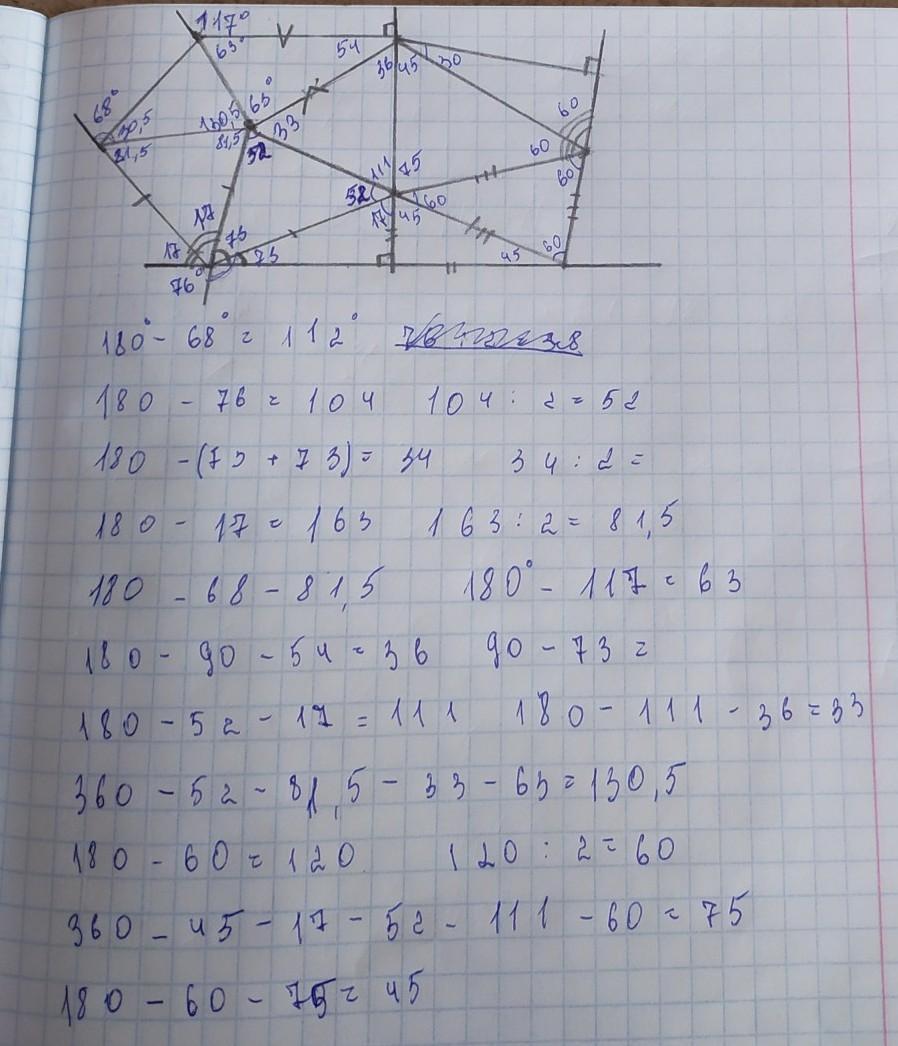 117°
63° 54
36 45 30
68° 60
30,5 130,5 63°
81,5 81,5 33 60
52 60
111 75
52 60
17 45
17 73
17 73 45 60
76°
180° - 68° = 112°
180 - 76 = 104 104 : 2 = 52
180 - (73 + 73) = 34 34 : 2 =
180 - 17 = 163 163 : 2 = 81,5
180 - 68 - 81,5 180° - 117 = 63
180 - 90 - 54 = 36 90 - 73 =
180 - 52 - 17 = 111 180 - 111 - 36 = 33
360 - 52 - 81,5 - 33 - 63 = 130,5
180 - 60 = 120 120 : 2 = 60
360 - 45 - 17 - 52 - 111 - 60 = 75
180 - 60 - 75 = 45